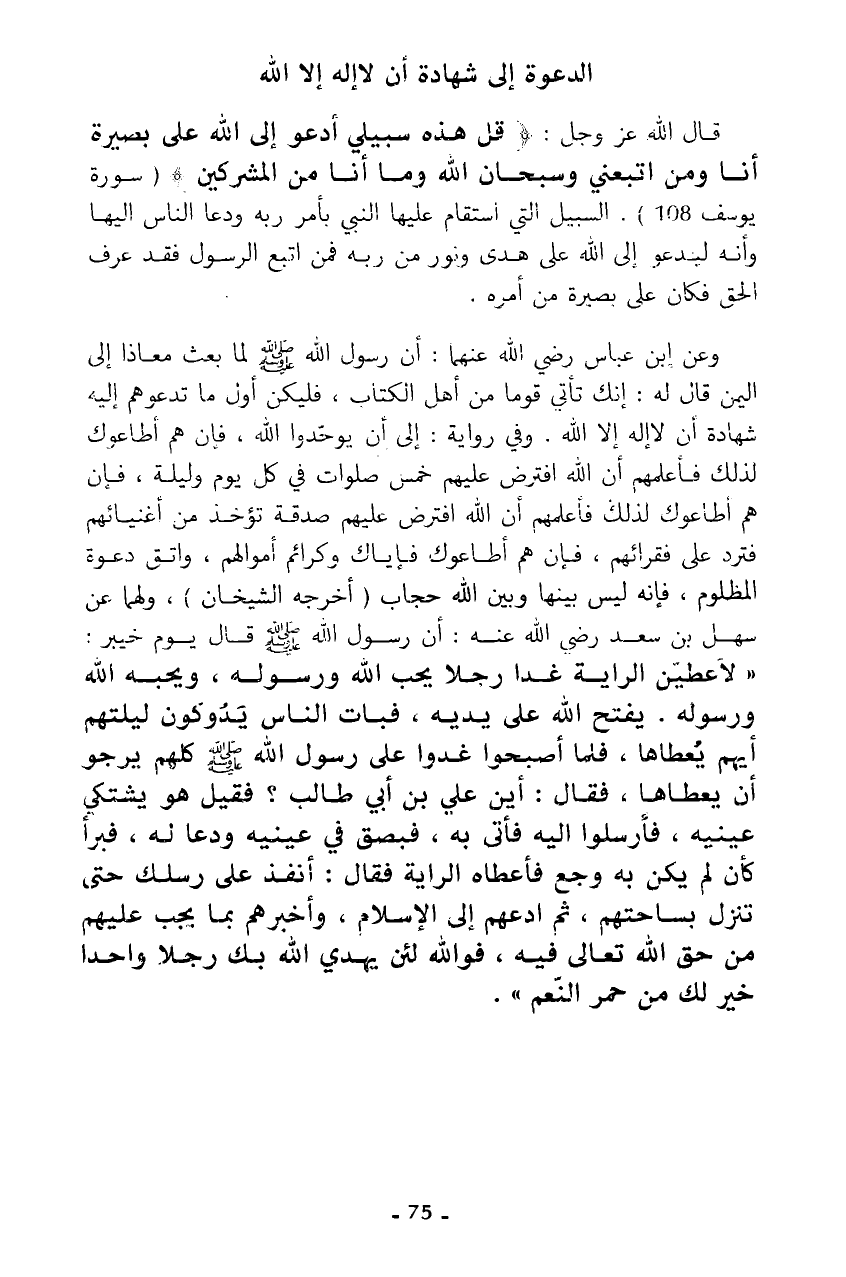 الدعوة إلى شهادة أن لاإله إلا الله
قال الله عز وجل : ﴿ قل هذه سبيلي أدعو إلى الله على بصيرة
أنا ومن اتبعني وسبحان الله وما أنا من المشركين ﴾ ( سورة
يوسف 108 ) . السبيل التي استقام عليها النبي بأمر ربه ودعا الناس اليها
وأنه ليدعو إلى الله على هدى ونور من ربه فمن اتبع الرسول فقد عرف
الحق فكان على بصيرة من أمره .
وعن إبن عباس رضي الله عنهما : أن رسول الله ﷺ لما بعث معاذا إلى
اليمن قال له : إنك تأتي قوما من أهل الكتاب ، فليكن أول ما تدعوهم إليه
شهادة أن لاإله إلا الله . وفي رواية : إلى أن يوحّدوا الله ، فإن هم أطاعوك
لذلك فأعلمهم أن الله افترض عليهم خمس صلوات في كل يوم وليلة ، فإن
هم أطاعوك لذلك فأعلمهم أن الله افترض عليهم صدقة تؤخذ من أغنيائهم
فترد على فقرائهم ، فإن هم أطاعوك فإياك وكرائم أموالهم ، واتق دعوة
المظلوم ، فإنه ليس بينها وبين الله حجاب ( أخرجه الشيخان ) ، ولهما عن
سهل بن سعد رضي الله عنه : أن رسول الله ﷺ قال يوم خيبر :
« لأعطيّن الراية غدا رجلا يحب الله ورسوله ، ويحبه الله
ورسوله . يفتح الله على يديه ، فبات الناس يَدُوكون ليلتهم
أيهم يُعطاها ، فلما أصبحوا غدوا على رسول الله ﷺ كلهم يرجو
أن يعطاها ، فقال : أين علي بن أبي طالب ؟ فقيل هو يشتكي
عينيه ، فأرسلوا اليه فأتى به ، فبصق في عينيه ودعا له ، فبرأ
كأن لم يكن به وجع فأعطاه الراية فقال : أنفذ على رسلك حتى
تنزل بساحتهم ، ثم ادعهم إلى الإسلام ، وأخبرهم بما يجب عليهم
من حق الله تعالى فيه ، فوالله لئن يهدي الله بك رجلا واحدا
خير لك من حمر النّعم » .
- 75 -